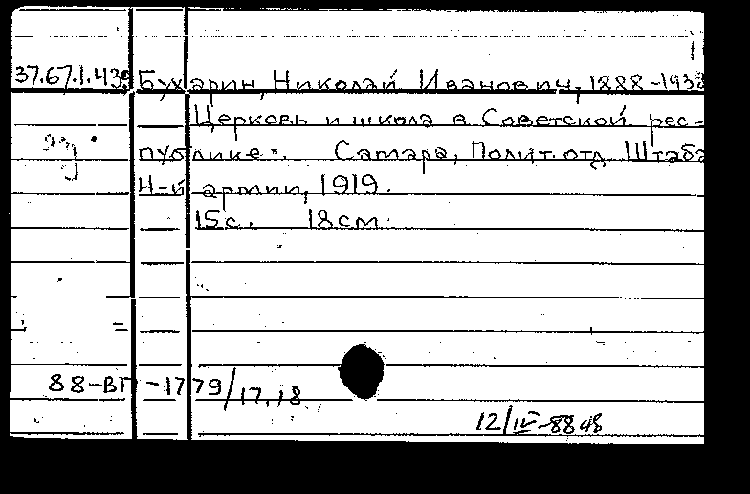 37.67.1.439 Бухарин, Николай Иванович, 1888-1938
Церковь и школа в Советской рес-
публике. Самара, Полит. отд. Штаба
4-й армии, 1919.
15 с. 18 см.
88-ВП-1779/17.18
12/IV-88